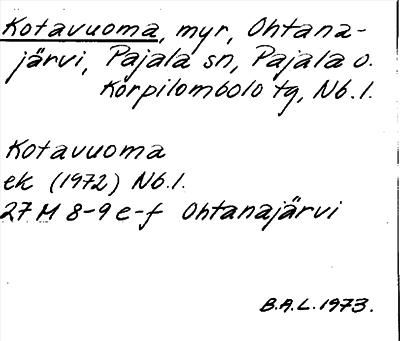 Kotavuoma, myr, Ohtana-
järvi, Pajala sn, Pajala o.
Korpilombolo tg, Nb.l.
Kotavuoma
ek (1972) Nb.l.
27 M 8-9 e-f Ohtanajärvi
B.A.L. 1973.